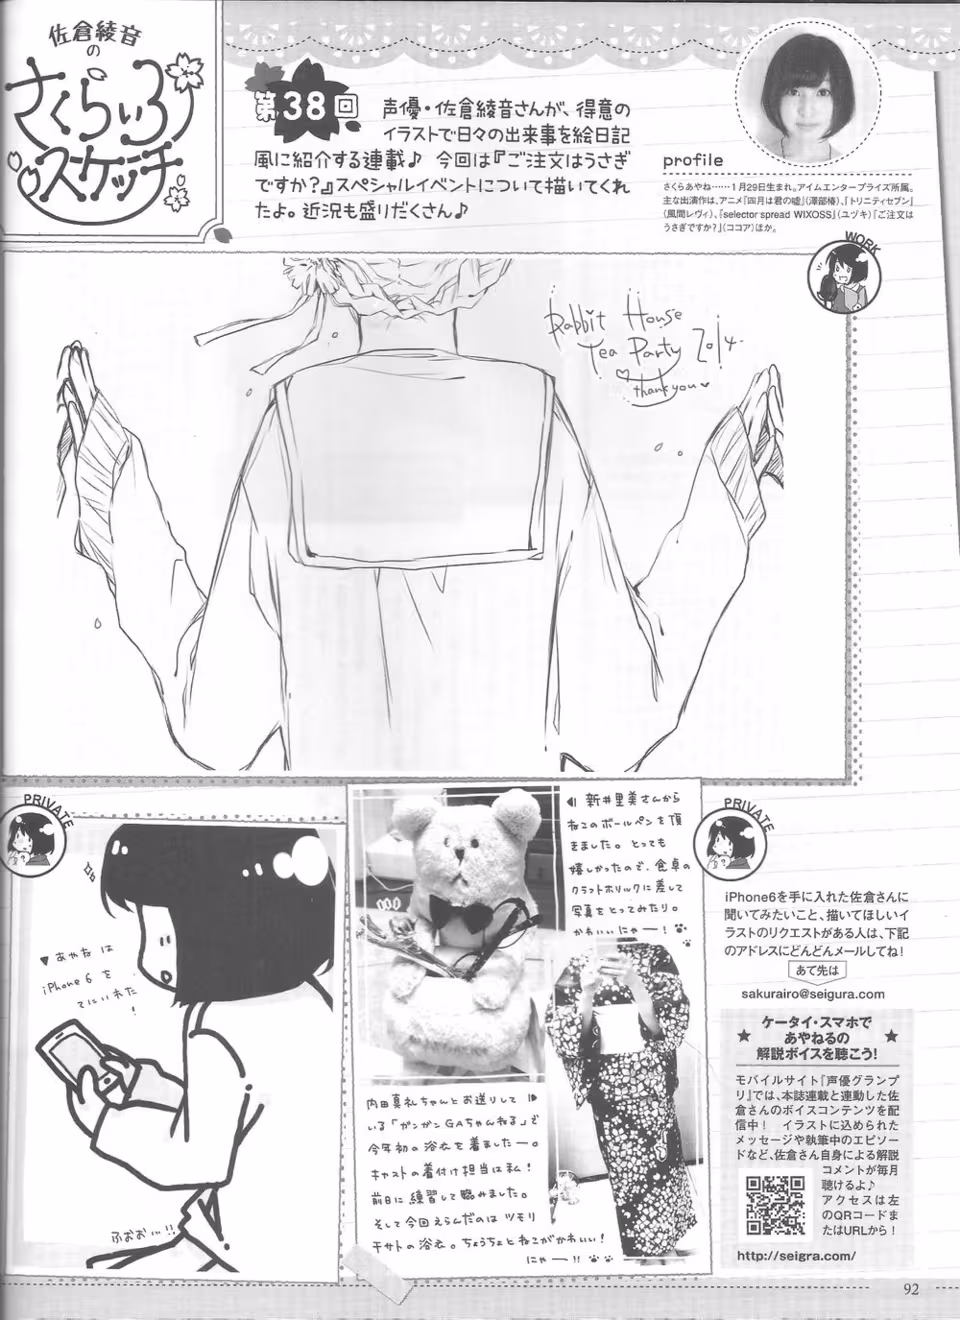 佐倉綾音
の
さくらいろ
スケッチ
第38回
声優・佐倉綾音さんが、得意の
イラストで日々の出来事を絵日記
風に紹介する連載♪ 今回は『ご注文はうさぎ
ですか?』スペシャルイベントについて描いてくれ
たよ。近況も盛りだくさん♪
profile
さくらあやね……1月29日生まれ。アイムエンタープライズ所属。
主な出演作は、アニメ『四月は君の嘘』(澤部椿)、『トリニティセブン』
(風間レヴィ)、『selector spread WIXOSS』(ユヅキ)『ご注文は
うさぎですか?』(ココア)ほか。
WORK
Rabbit House
Tea Party 2014.
thank you
PRIVATE
▼あやねは
iPhone6を
てにいれた!
ふおお…!!
◀新井里美さんから
ねこのボールペンを頂
きました。とっても
嬉しかったので、食卓の
クラフトホリックに差して
写真をとってみたり。
かわいいにゃー!
内田真礼ちゃんとお送りして▶
いる「ガンガンGAちゃんねる」で
今年初の浴衣を着ましたー。
キャストの着付け担当は私!
前日に練習して臨みました。
そして今回えらんだのはツモリ
チサトの浴衣。ちょうちょとねこがかわいい!
にゃー!!
PRIVATE
iPhone6を手に入れた佐倉さんに
聞いてみたいこと、描いてほしいイ
ラストのリクエストがある人は、下記
のアドレスにどんどんメールしてね!
あて先は
sakurairo@seigura.com
ケータイ・スマホで
★ あやねるの ★
解説ボイスを聴こう!
モバイルサイト『声優グランプ
リ』では、本誌連載と連動した佐
倉さんのボイスコンテンツを配
信中! イラストに込められた
メッセージや執筆中のエピソー
ドなど、佐倉さん自身による解説
コメントが毎月
聴けるよ♪
アクセスは左
のQRコードま
たはURLから!
http://seigra.com/
92